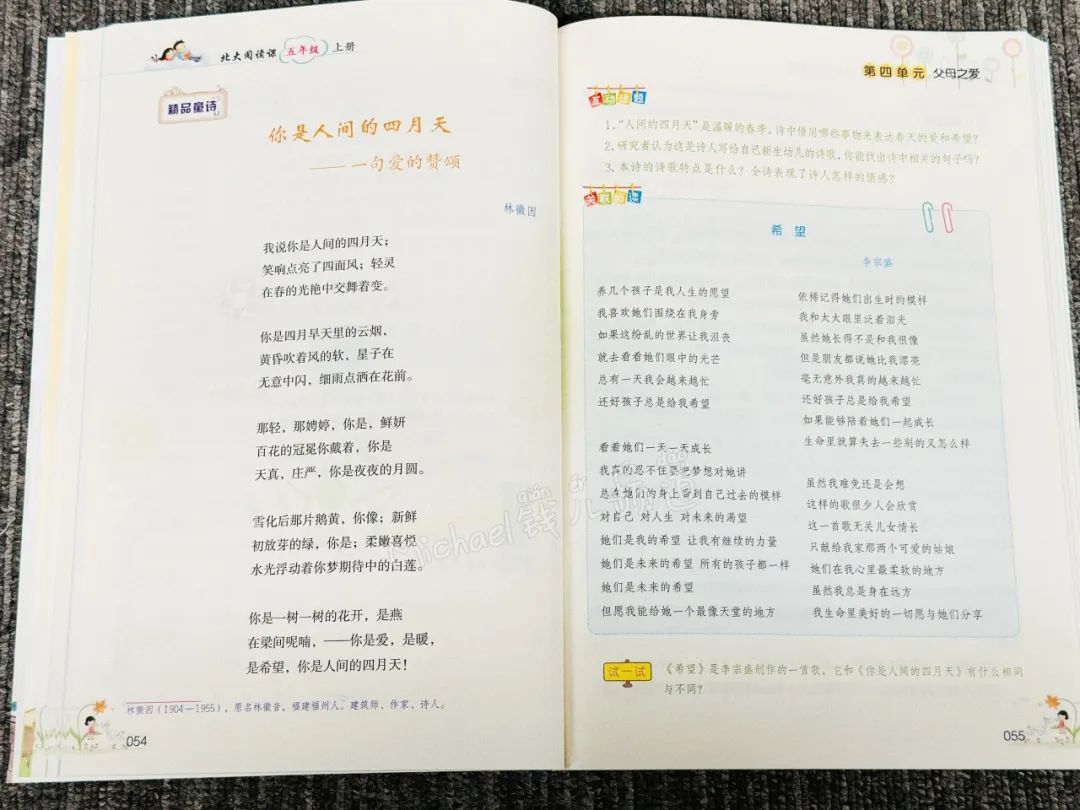 北大阅读课 五年级 上册
精品童诗
你是人间的四月天
——一句爱的赞颂
林徽因
我说你是人间的四月天；
笑响点亮了四面风；轻灵
在春的光艳中交舞着变。
你是四月早天里的云烟，
黄昏吹着风的软，星子在
无意中闪，细雨点洒在花前。
那轻，那娉婷，你是，鲜妍
百花的冠冕你戴着，你是
天真，庄严，你是夜夜的月圆。
雪化后那片鹅黄，你像；新鲜
初放芽的绿，你是；柔嫩喜悦
水光浮动着你梦期待中的白莲。
你是一树一树的花开，是燕
在梁间呢喃，——你是爱，是暖，
是希望，你是人间的四月天！
林徽因（1904—1955），原名林徽音，福建福州人。建筑师、作家、诗人。
054
第四单元 父母之爱
互动话题
1.“人间的四月天”是温暖的春季，诗中借用哪些事物来表达春天的爱和希望？
2.研究者认为这是诗人写给自己新生幼儿的诗歌，你能找出诗中相关的句子吗？
3.本诗的诗歌特点是什么？全诗表现了诗人怎样的情感？
关联阅读
希望
李宗盛
养几个孩子是我人生的愿望
我喜欢她们围绕在我身旁
如果这纷乱的世界让我沮丧
就去看看她们眼中的光芒
总有一天我会越来越忙
还好孩子总是给我希望
看着她们一天一天成长
我真的忍不住要把梦想对她讲
总在她们的身上看到自己过去的模样
对自己 对人生 对未来的渴望
她们是我的希望 让我有继续的力量
她们是未来的希望 所有的孩子都一样
她们是未来的希望
但愿我能给她一个最像天堂的地方
依稀记得她们出生时的模样
我和太太眼里泛着泪光
虽然她长得不是和我很像
但是朋友都说她比我漂亮
毫无意外我真的越来越忙
还好孩子总是给我希望
如果能够陪着她们一起成长
生命里就算失去一些别的又怎么样
虽然我难免还是会想
这样的歌很少人会欣赏
这一首歌无关儿女情长
只献给我家那两个可爱的姑娘
她们在我心里最柔软的地方
虽然我总是身在远方
我生命里美好的一切愿与她们分享
试一试
《希望》是李宗盛创作的一首歌，它和《你是人间的四月天》有什么相同
与不同？
055
Michael钱儿